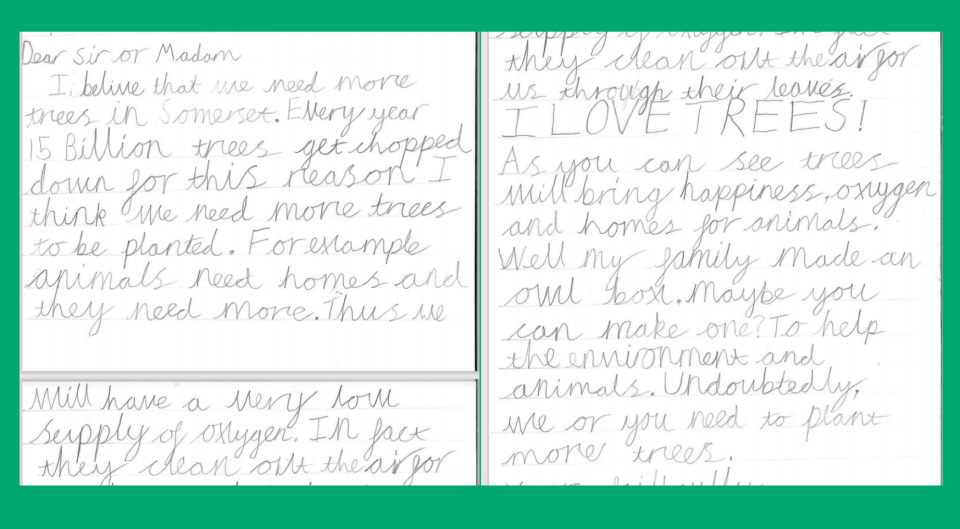 Dear Sir or Madam
I belive that we need more
trees in Somerset. Every year
15 Billion trees get chopped
down for this reason I
think we need more trees
to be planted. For example
animals need homes and
they need more. Thus we
will have a very low
supply of oxygen. In fact
they clean out the air for
supply of oxygen. In fact
they clean out the air for
us through their leaves.
I LOVE TREES!
As you can see trees
will bring happiness, oxygen
and homes for animals.
Well my family made an
owl box. Maybe you
can make one? To help
the environment and
animals. Undoubtedly,
we or you need to plant
more trees.